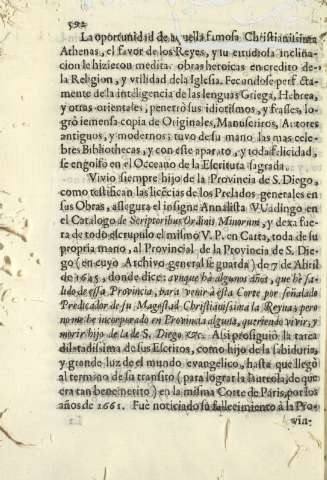 592
La oportunidad de aquella famosa Christianissima
Athenas, el favor de los Reyes, y su estudiosa inclina-
cion le hizieron meditar obras heroicas en credito de
la Religion, y vtilidad dela Iglesia. Fecundose perfecta-
mente de la inteligencia de las lenguas Griega, Hebrea,
y otras orientales, penetrò sus idiotismos, y frasses, lo-
grò iemensa copia de Originales, Manuscritos, Autores
antiguos, y modernos: tuvo de su mano las mas cele-
bres Bibliothecas, y con este aparato, y toda felicidad,
se engolfò en el Occeano de la Escritura sagrada.
Vivio siempre hijo de la Provincia de S. Diego,
como testifican las licẽcias de los Prelados generales en
sus Obras, assegura el insigne Annalista VVadingo en
el Catalogo de Scriptoribus Ordinis Minorum, y dexa fue-
ra de todo escrupulo el mismo V. P. en Carta, toda de su
propria mano, al Provincial de la Provincia de S. Die-
go (en cuyo Archivo general se guarda) de 7 de Abril
de 1645, donde dice: aunque hà algunos años, que hè sa-
lido de essa Provincia, para venir à esta Corte por señalado
Predicador de su Magestad Christianissima la Reyna; pero
no me he incorporado en Provincia alguna, queriendo vivir, y
morir hijo de la de S. Diego, &c. Assi prosiguiò la tarea
dilatadissima de sus Escritos, como hijo de la sabiduria,
y grande luz de el mundo evangelico, hasta que llegò
al termino de su transito (para lograr la laureola, de que
era tan benemerito) en la misma Corte de Paris, por los
años de 1661. Fuè noticiado su fallecimiento à la Pro-
vin-